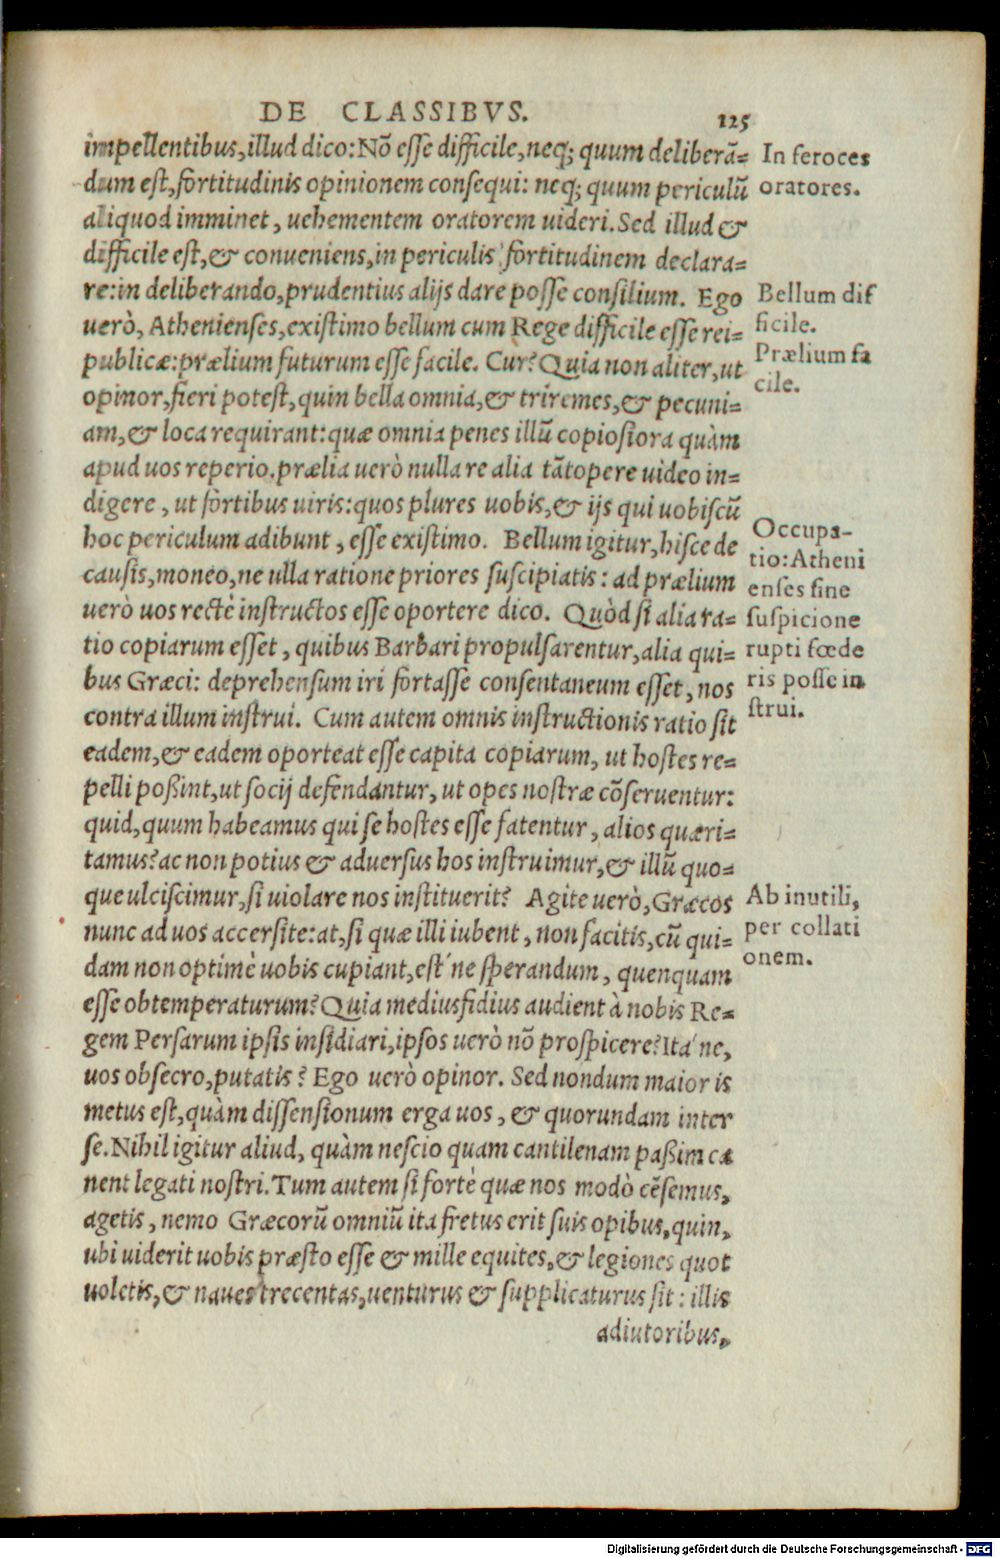 DE CLASSIBVS. 125
impellentibus, illud dico: Nõ esse difficile, neq; quum deliberã=
dum est, fortitudinis opinionem consequi: neq; quum periculũ
aliquod imminet, uehementem oratorem uideri. Sed illud &
difficile est, & conueniens, in periculis fortitudinem declara=
re: in deliberando, prudentius alijs dare posse consilium. Ego
uerò, Athenienses, existimo bellum cum Rege difficile esse rei=
publicæ: prælium futurum esse facile. Cur? Quia non aliter, ut
opinor, fieri potest, quin bella omnia, & triremes, & pecuni=
am, & loca requirant: quæ omnia penes illũ copiosiora quàm
apud uos reperio. prælia uerò nulla re alia tãtopere uideo in=
digere, ut fortibus uiris: quos plures uobis, & ijs qui uobiscũ
hoc periculum adibunt, esse existimo. Bellum igitur, hisce de
causis, moneo, ne ulla ratione priores suscipiatis: ad prælium
uerò uos rectè instructos esse oportere dico. Quòd si alia ra=
tio copiarum esset, quibus Barbari propulsarentur, alia qui=
bus Græci: deprehensum iri fortasse consentaneum esset, nos
contra illum instrui. Cum autem omnis instructionis ratio sit
eadem, & eadem oporteat esse capita copiarum, ut hostes re=
pelli poßint, ut socij defendantur, ut opes nostræ cõseruentur:
quid, quum habeamus qui se hostes esse fatentur, alios quæri=
tamus? ac non potius & aduersus hos instruimur, & illũ quo=
que ulciscimur, si uiolare nos instituerit? Agite uerò, Græcos
nunc ad uos accersite: at, si quæ illi iubent, non facitis, cũ qui=
dam non optimè uobis cupiant, est´ne sperandum, quenquam
esse obtemperaturum? Quia mediusfidius audient à nobis Re=
gem Persarum ipsis insidiari, ipsos uerò nõ prospicere? Ita´ne,
uos obsecro, putatis? Ego uerò opinor. Sed nondum maior is
metus est, quàm dissensionum erga uos, & quorundam inter
se. Nihil igitur aliud, quàm nescio quam cantilenam paßim ca
nent legati nostri. Tum autem si fortè quæ nos modò cẽsemus,
agetis, nemo Græcorũ omniũ ita fretus erit suis opibus, quin,
ubi uiderit uobis præsto esse & mille equites, & legiones quot
uoletis, & naues trecentas, uenturus & supplicaturus sit: illis
adiutoribus,
In feroces
oratores.
Bellum dif
ficile.
Prælium fa
cile.
Occupa-
tio: Atheni
enses sine
suspicione
rupti fœde
ris posse in
strui.
Ab inutili,
per collati
onem.
Digitalisierung gefördert durch die Deutsche Forschungsgemeinschaft - DFG